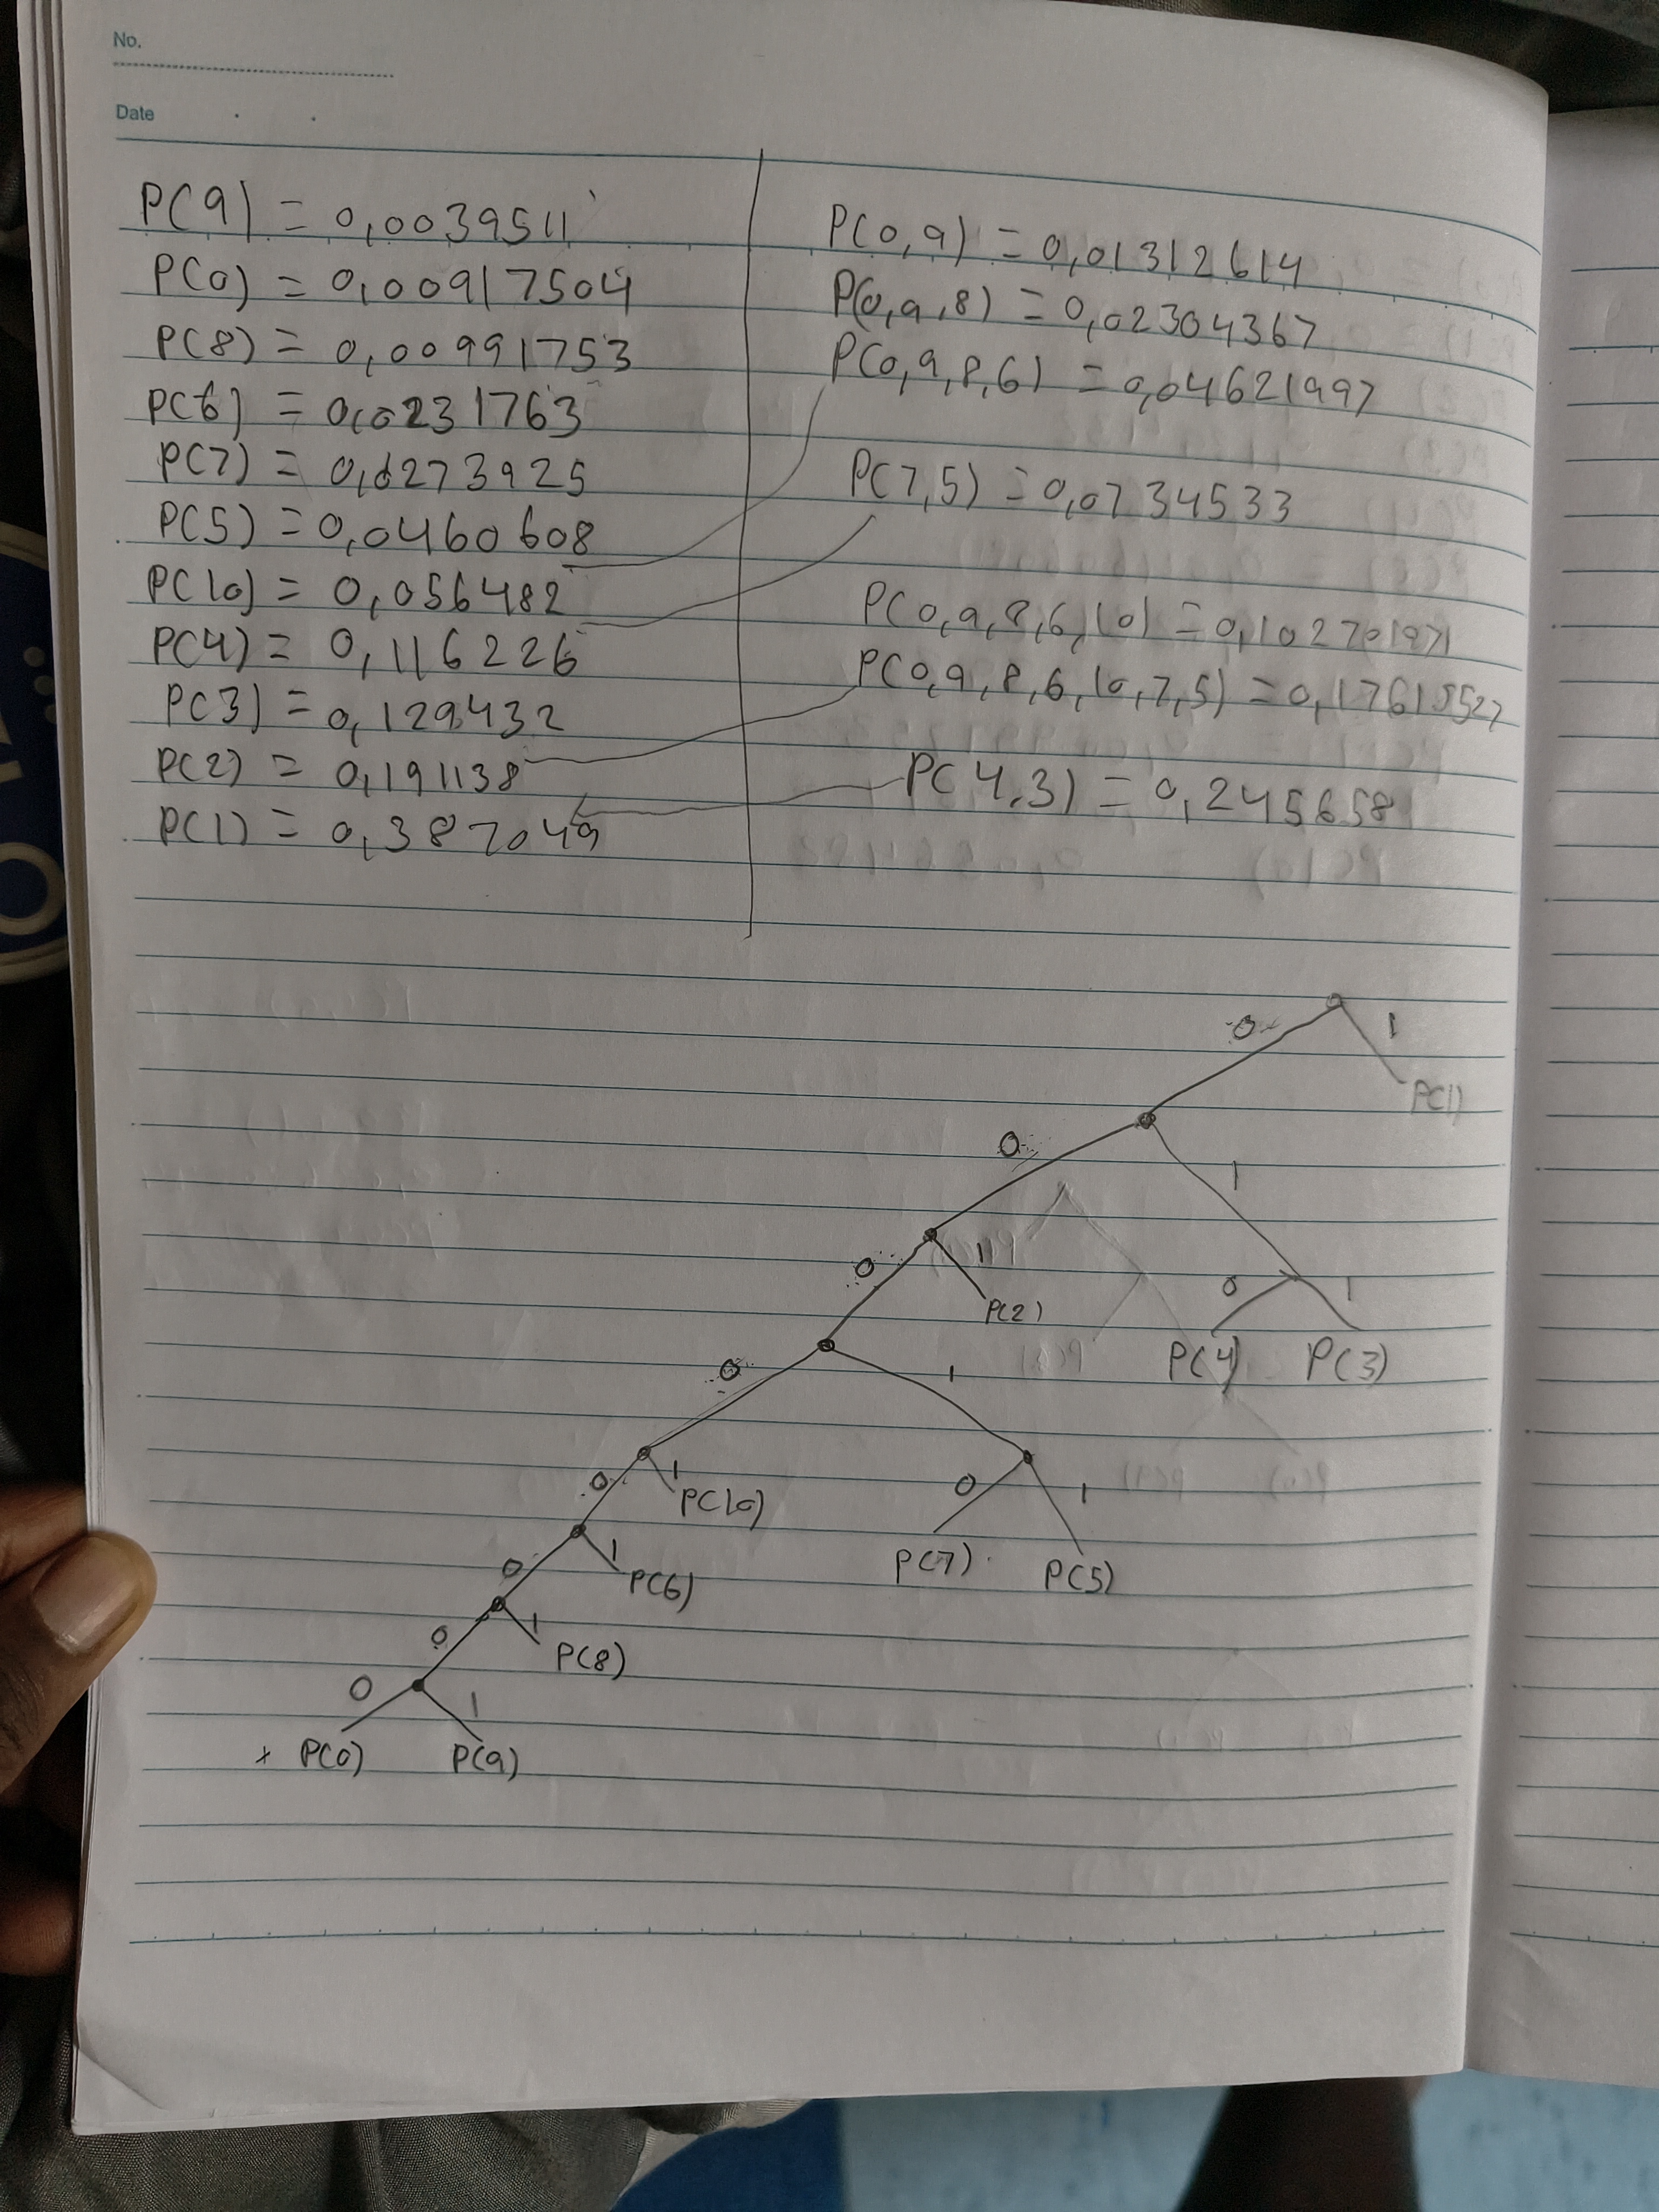 No.
Date
P(9) = 0,0039511
P(0) = 0,009917504
P(8) = 0,00991753
P(6) = 0,0231763
P(7) = 0,0273925
P(5) = 0,0460608
P(10) = 0,056482
P(4) = 0,116226
P(3) = 0,129432
P(2) = 0,191138
P(1) = 0,387049
P(0,9) = 0,01312614
P(0,9,8) = 0,02304367
P(0,9,8,6) = 0,04621997
P(7,5) = 0,0734533
P(0,9,8,6,10) = 0,102701971
P(0,9,8,6,10,7,5) =
P(4,3) = 0,245658
0 1
P(1)
0 1
0 1
P(2)
0 1
P(4) P(3)
0 1
0 1
P(10)
0 1
P(7) P(5)
0 1
P(6)
0 1
P(8)
0 1
P(0) P(9)